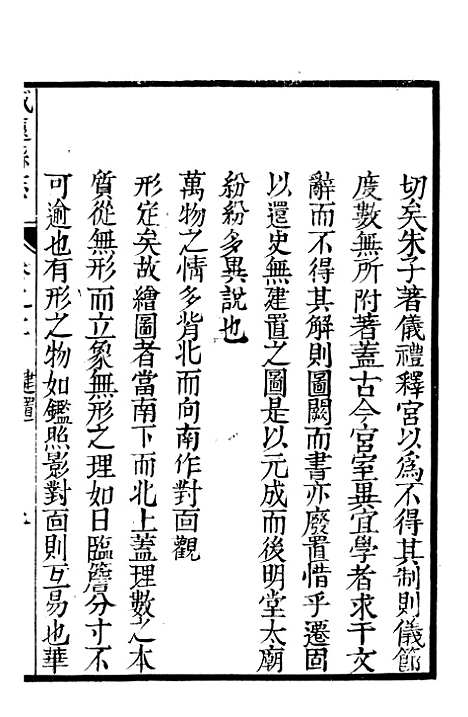 切矣朱子著儀禮釋宮以為不得其制則儀節
度數無所附著蓋古今宮室異宜學者求于文
辭而不得其解則圖闕而書亦廢置惜乎遷固
以還史無建置之圖是以元成而後明堂太廟
紛紛多異說也
萬物之情多背北而向南作對面觀
形定矣故繪圖者當南下而北上蓋理數之本
質從無形而立象無形之理如日臨簷分寸不
可逾也有形之物如鑑照影對面則互易也華
建置